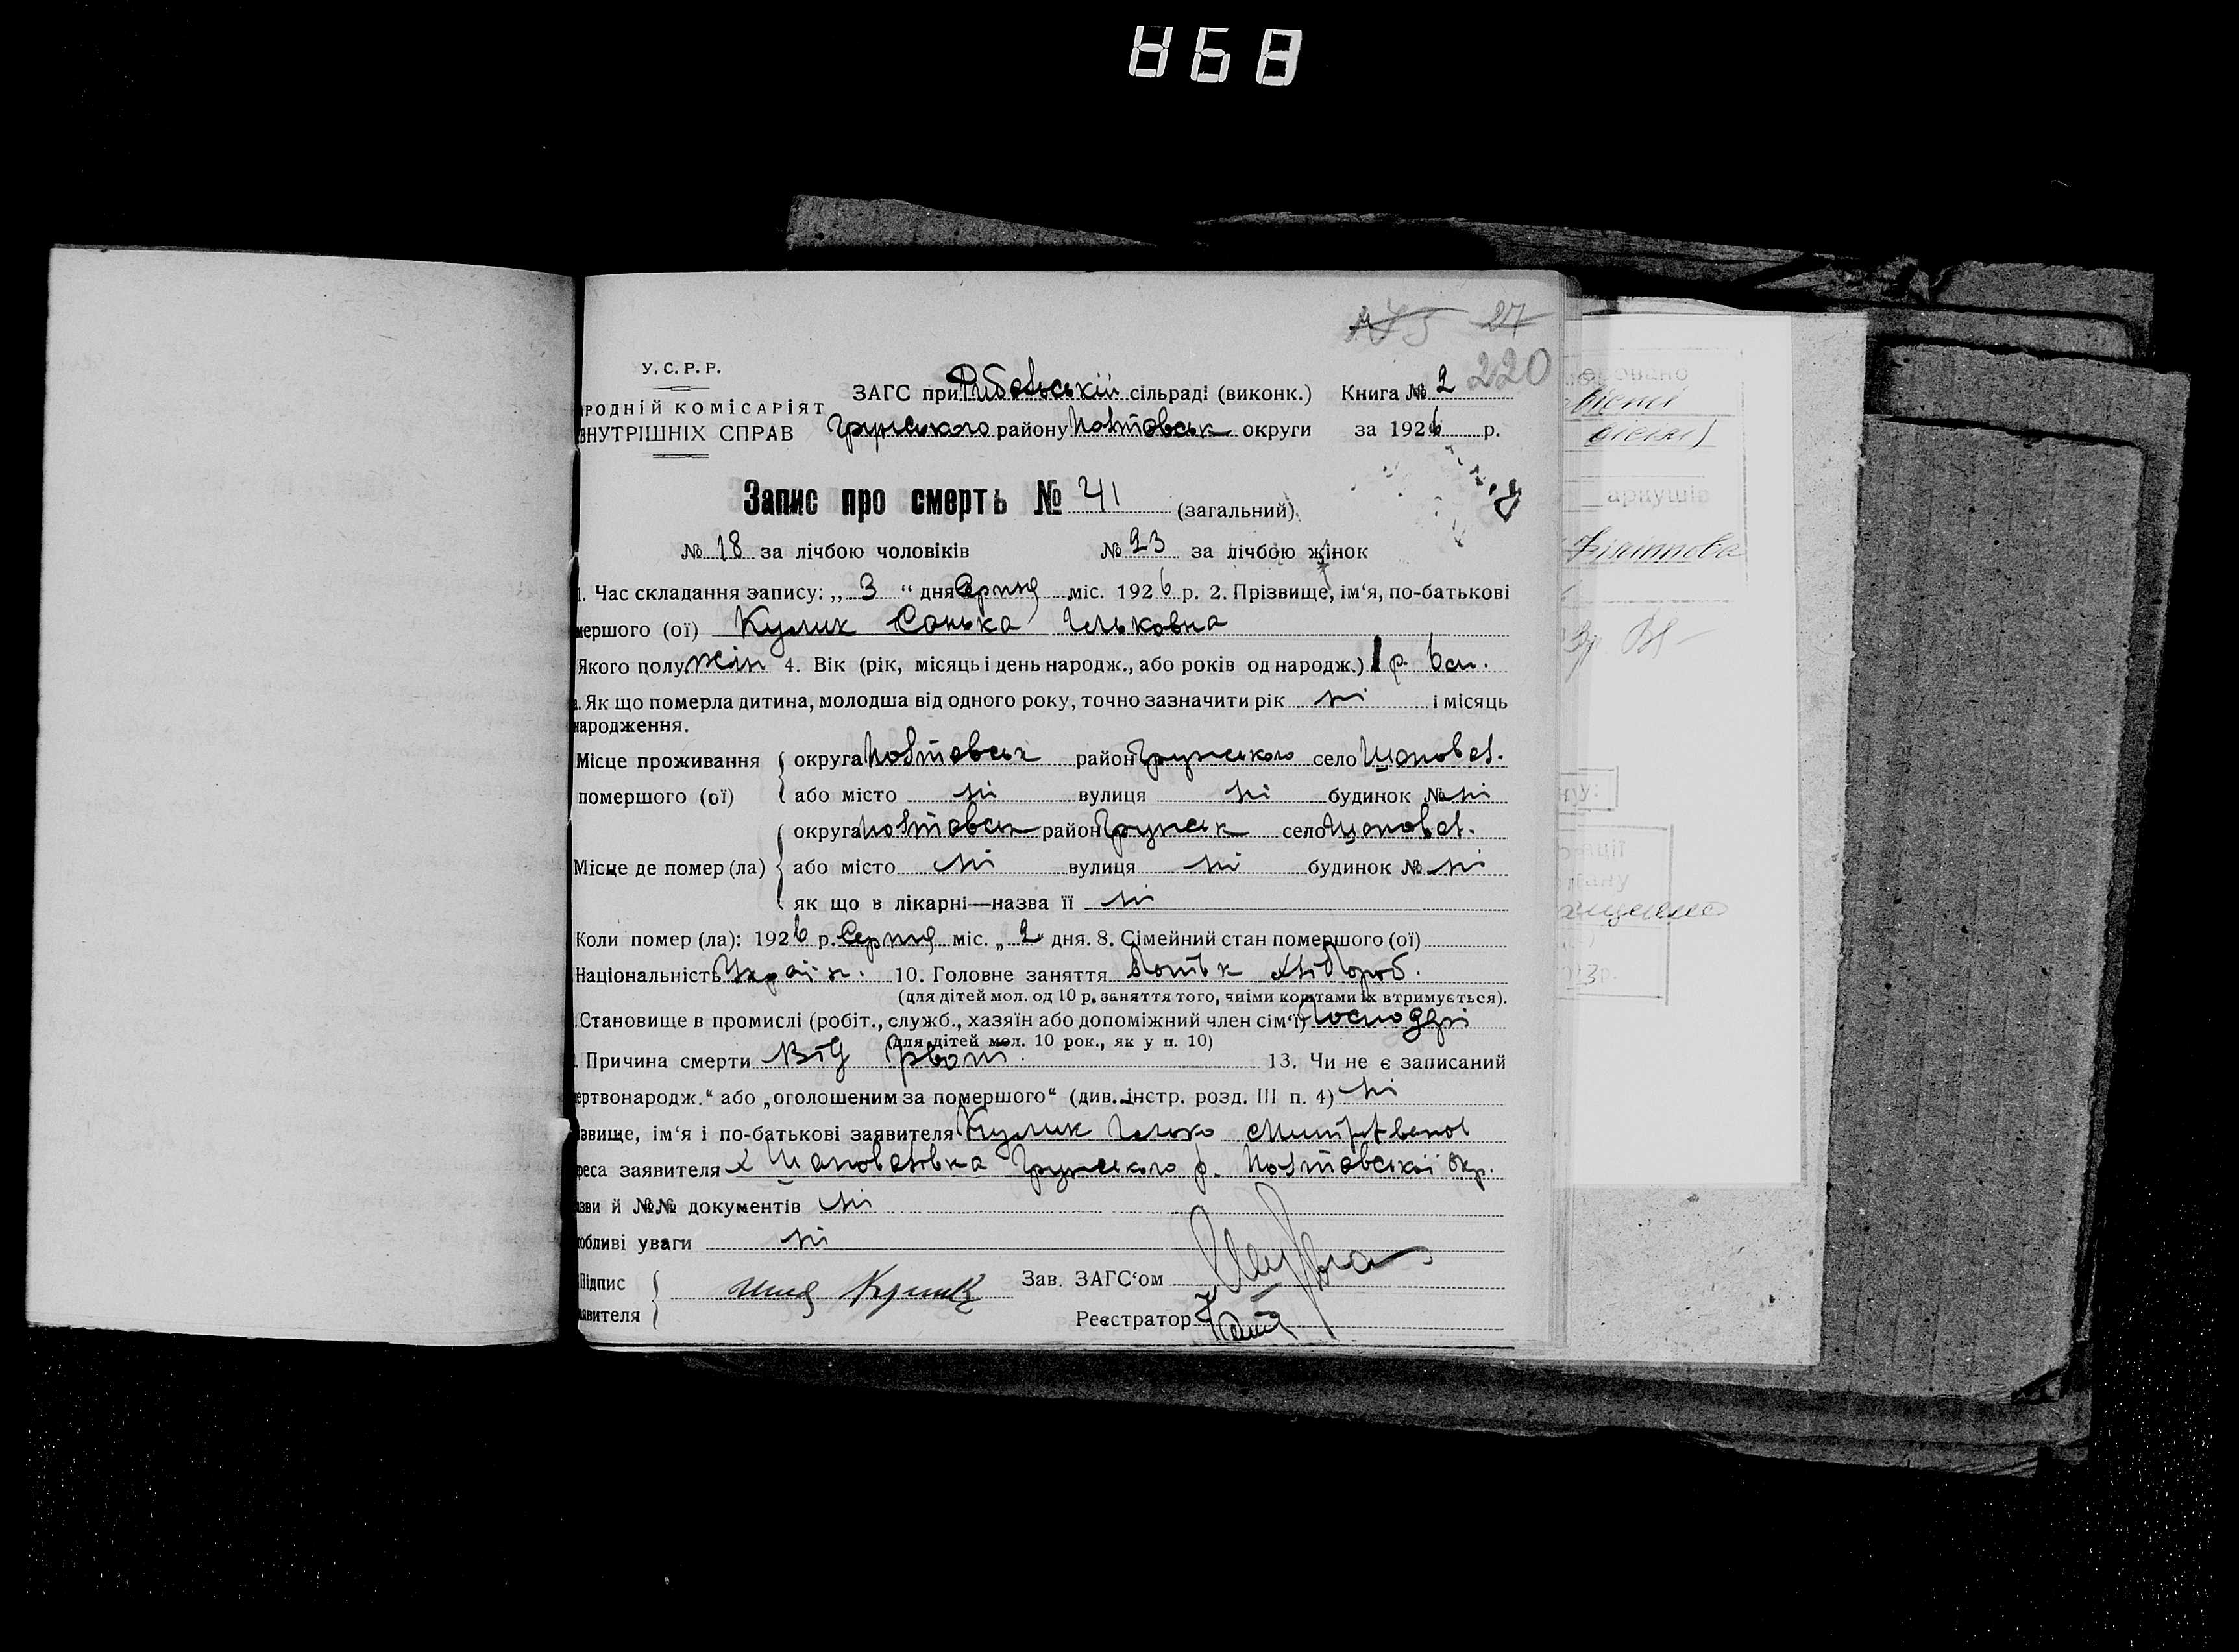 868
27
220
У.С.Р.Р.
ЗАГС при Рибальській сільраді (виконк.) Книга № 2
РОДНІЙ КОМІСАРІЯТ
ВНУТРІШНІХ СПРАВ Грунського району Полтавськ округи за 1926 р.
Запис про смерть № 41 (загальний)
№ 18 за лічбою чоловіків № 23 за лічбою жінок
1. Час складання запису: „ 3 “ дня Серпня міс. 1926 р. 2. Прізвище, ім‘я, по-батькові
мершого (ої) Кулик Санька Ильковна
Якого полу жін 4. Вік (рік, місяць і день народж., або років од народж.) 1 р. 6 м.
. Як що померла дитина, молодша від одного року, точно зазначити рік ні і місяць
народження.
Місце проживання округа Полтавськ район Грунського село Шаповал.
помершого (ої) або місто ні вулиця ні будинок № ні
округа Полтавськ район Грунськ село Шаповал.
Місце де помер (ла) або місто ні вулиця ні будинок № ні
як що в лікарні—назва її ні
Коли помер (ла): 1926 р. Серпня міс. „ 2 “ дня. 8. Сімейний стан помершого (ої)
Національність Україн. 10. Головне заняття Хліборob.
(для дітей мол. од 10 р. заняття того, чиїми коштами їх втримується).
.Становище в промислі (робіт., служб., хазяїн або допоміжний член сім‘ї)
(для дітей мол. 10 рок., як у п. 10)
. Причина смерти Від рвоти 13. Чи не є записаний
ертвонародж.“ або „оголошеним за помершого“ (див. інстр. розд. III п. 4) ні
звище, ім‘я і по-батькові заявителя Кулик Илько
реса заявителя х Шаповалівка Грунського р. Полтавської окр.
азви й №№ документів ні
собливі уваги ні
Підпис Илья Кулик Зав. ЗАГС‘ом
аявителя Реєстратор
аркушів